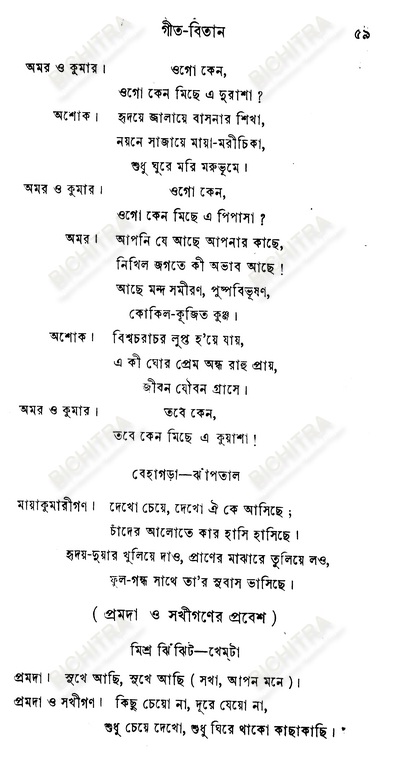 গীত-বিতান ৫৯
অমর ও কুমার। ওগো কেন,
ওগো কেন মিছে এ দুরাশা ?
অশোক। হৃদয়ে জ্বালায়ে বাসনার শিখা,
নয়নে সাজায়ে মায়া-মরীচিকা,
শুধু ঘুরে মরি মরুভূমে।
অমর ও কুমার। ওগো কেন,
ওগো কেন মিছে এ পিপাসা ?
অমর। আপনি যে আছে আপনার কাছে,
নিখিল জগতে কী অভাব আছে !
আছে মন্দ সমীরণ, পুষ্পবিভূষণ,
কোকিল-কূজিত কুঞ্জ।
অশোক। বিশ্বচরাচর লুপ্ত হ'য়ে যায়,
এ কী ঘোর প্রেম অন্ধ রাহু প্রায়,
জীবন যৌবন গ্রাসে।
অমর ও কুমার। তবে কেন,
তবে কেন মিছে এ কুয়াশা !
বেহাগড়া—ঝাঁপতাল
মায়াকুমারীগণ। দেখো চেয়ে, দেখো ঐ কে আসিছে ;
চাঁদের আলোতে কার হাসি হাসিছে।
হৃদয়-দুয়ার খুলিয়ে দাও, প্রাণের মাঝারে তুলিয়ে লও,
ফুল-গন্ধ সাথে তা'র সুবাস ভাসিছে।
( প্রমদা ও সখীগণের প্রবেশ )
মিশ্র ঝিঁঝিট—খেম্‌টা
প্রমদা। সুখে আছি, সুখে আছি ( সখা, আপন মনে )।
প্রমদা ও সখীগণ। কিছু চেয়ো না, দূরে যেয়ো না,
শুধু চেয়ে দেখো, শুধু ঘিরে থাকো কাছাকাছি।
BICHITRA